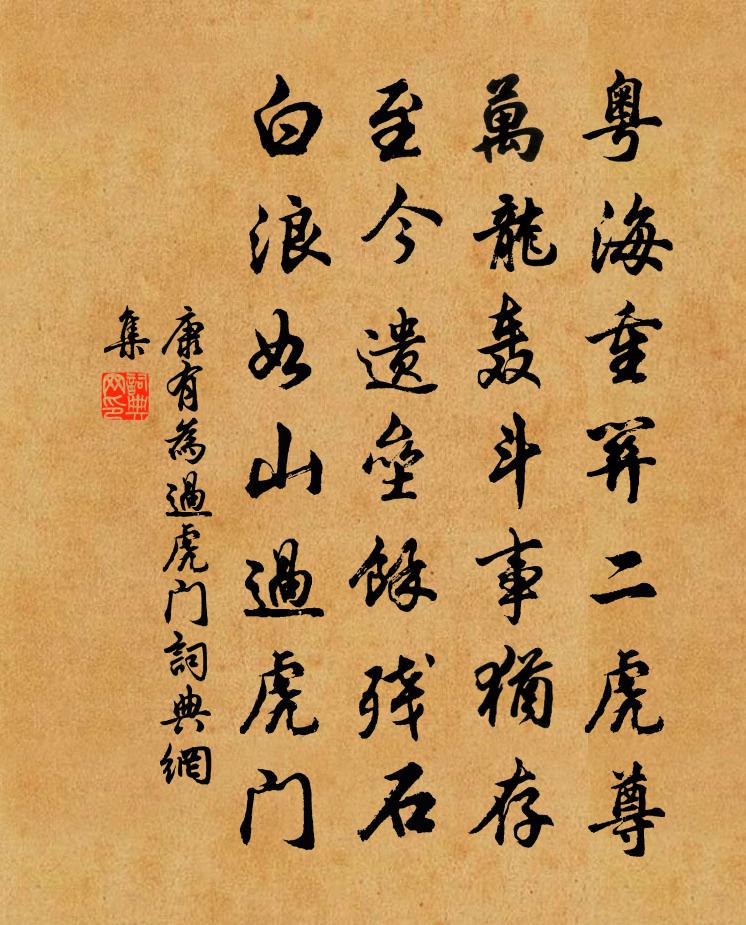 粵海重關二虎尊
萬龍轰斗事猶存
至今遗壘餘残石
白浪如山過虎门
康有為過虎门詞典網
集
詞典网印